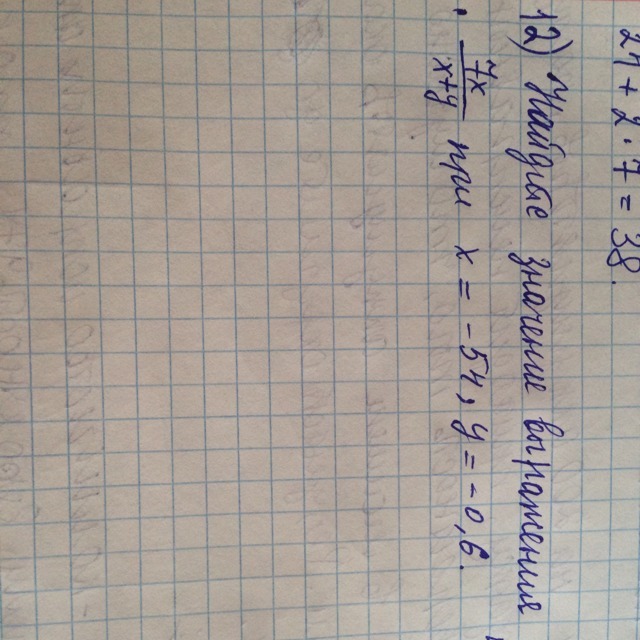 24 + 2 · 7 = 38.
12) Найдите значение выражения
7x/x+y при x = -54, y = -0,6.